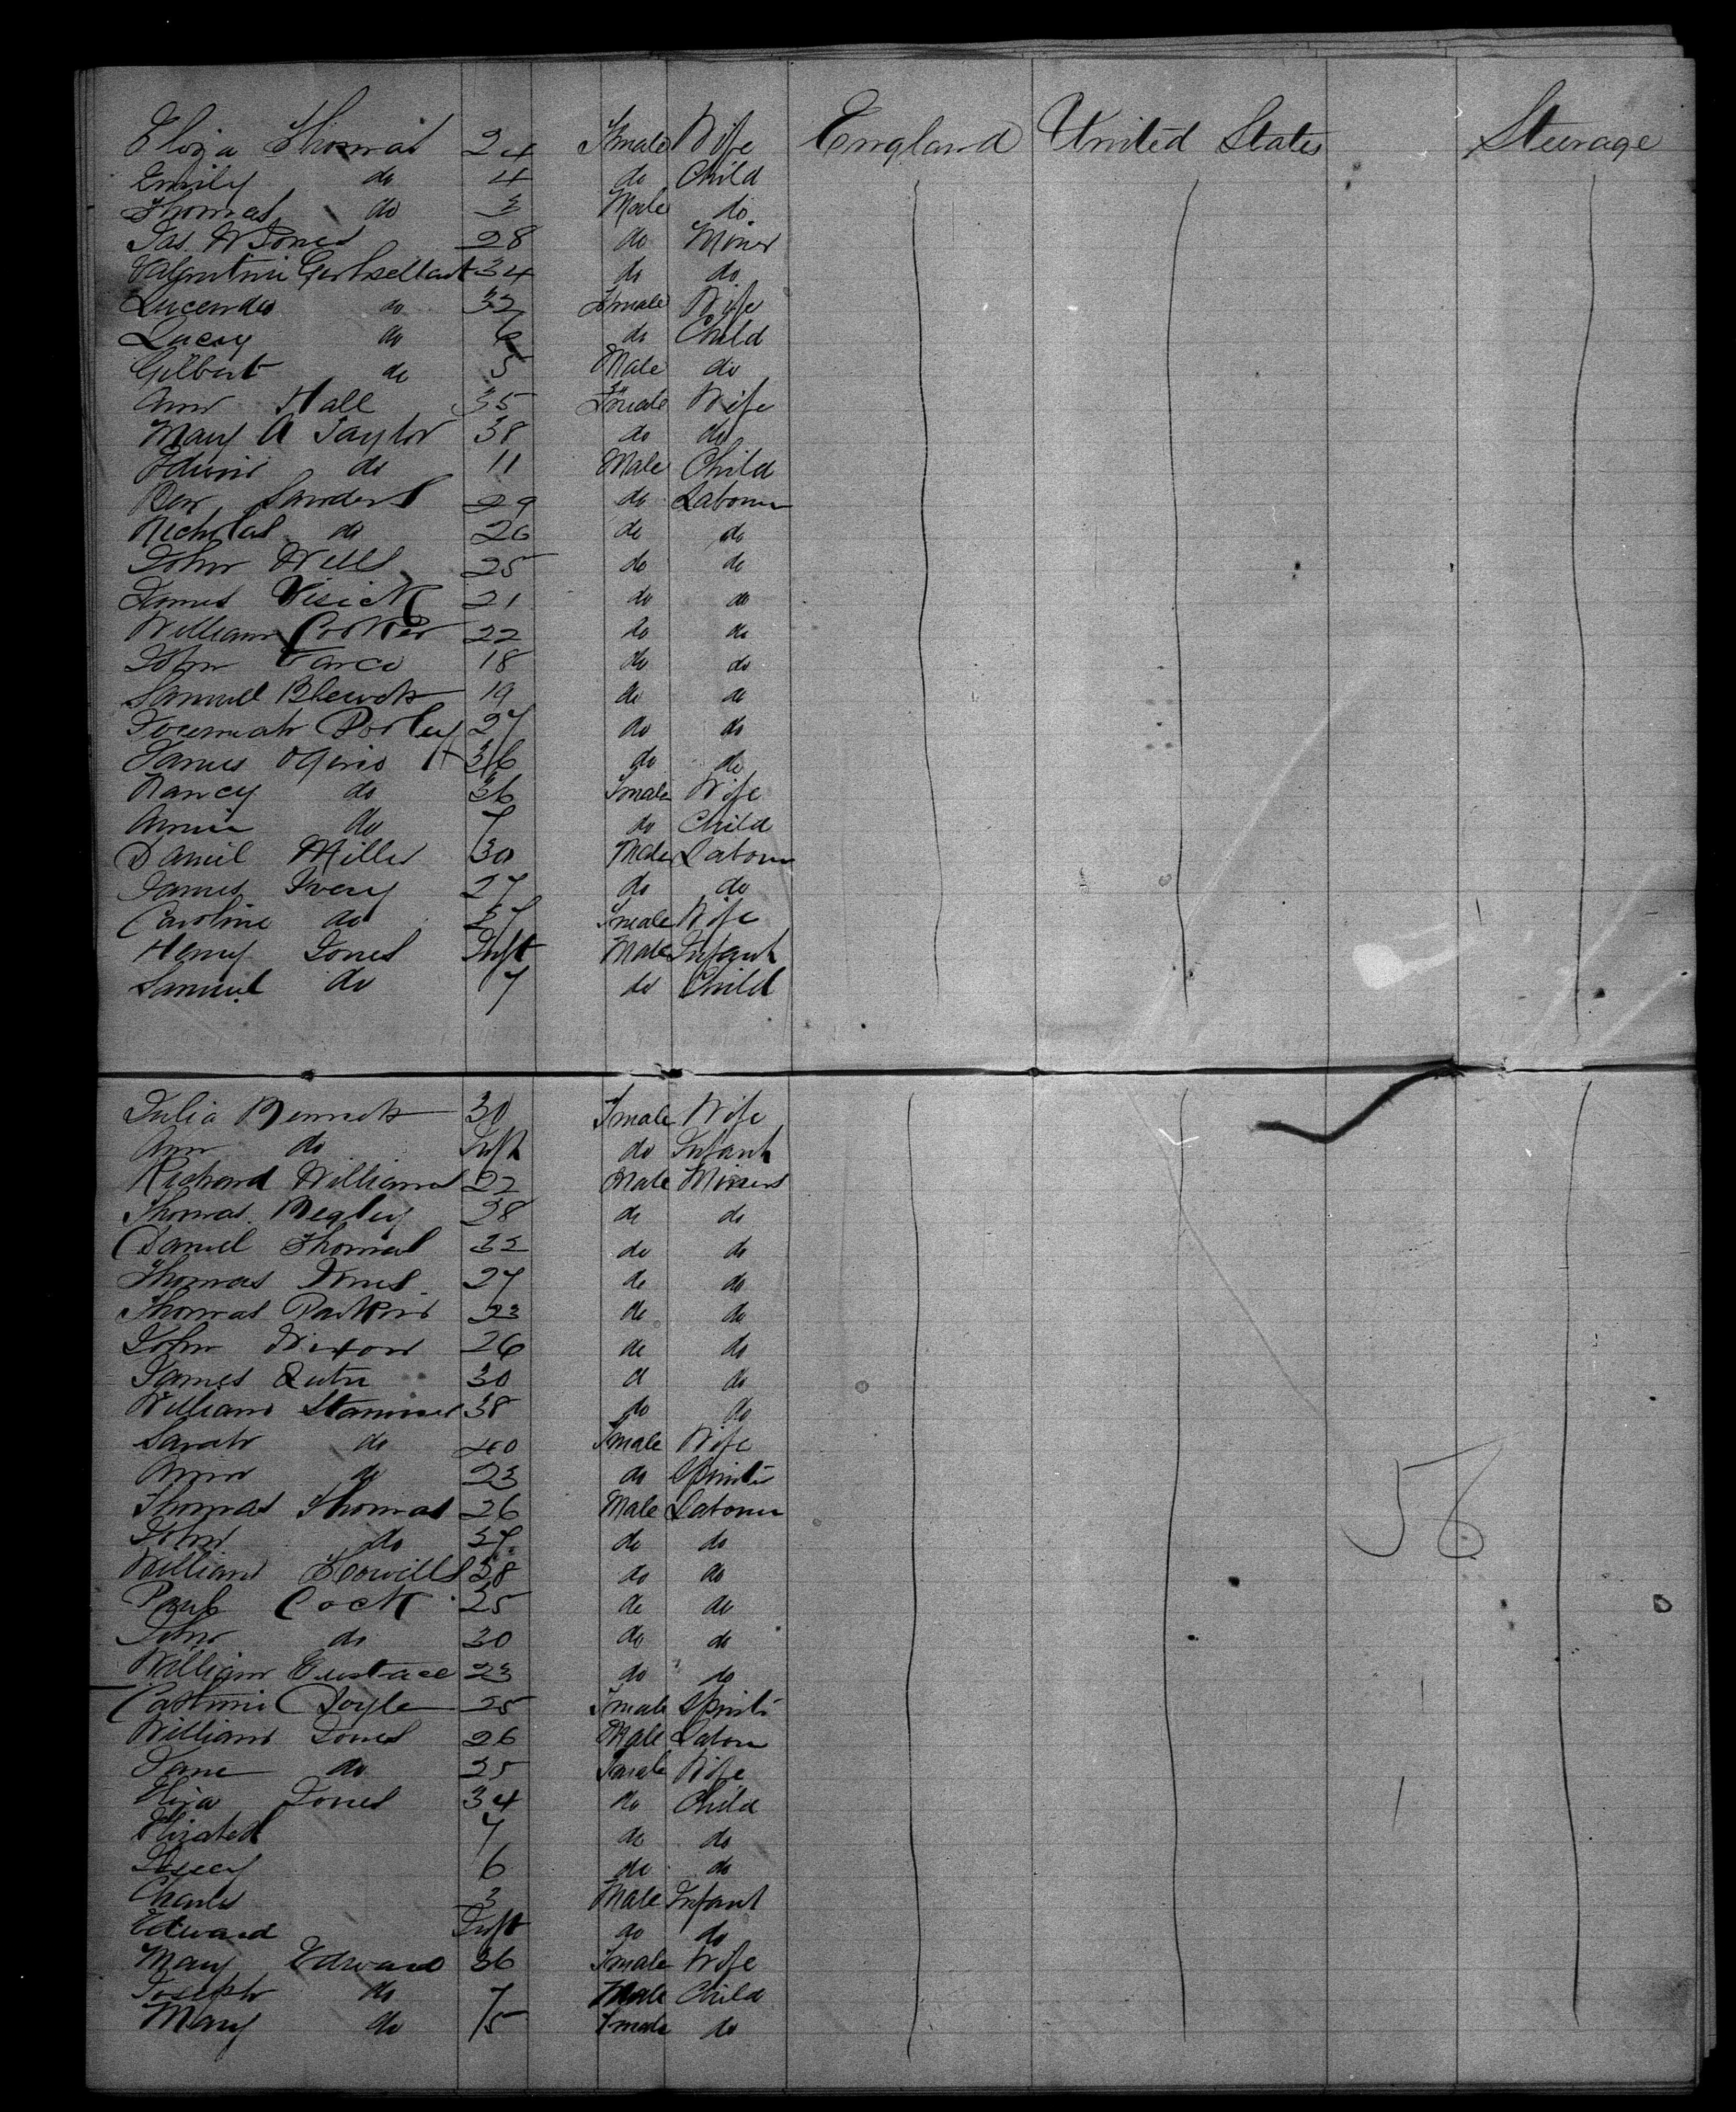 Eliza Thomas 24 Female Wife England United States Steerage
Emily do 4 do Child
Thomas do 3 Male do
Jas. W Jones 28 do Miner
34 do do
Lucenda do 32 Female Wife
Lucey do 6 do Child
Gilbert do 5 Male do
Ann Hall 35 Female Wife
Mary A Taylor 38 do do
Edwin do 11 Male Child
Ben Sanders 29 do Labourer
Nicholas do 26 do do
John Wills 25 do do
James Visick 21 do do
William Cooker 22 do do
John Varco 18 do do
Samuel Blewett 19 do do
27 do do
James 36 do do
Nancy do 36 Female Wife
Annie do 7 do Child
Daniel Miller 30 Male Labour
James Ivery 27 do do
Caroline do 27 Female Wife
Henry Jones Inft Male Infant
Samuel do 7 do Child
Julia Bennett 30 Female Wife
Ann do Inft do Infant
Richard Williams 22 Male Miners
Thomas Begley 28 do do
Daniel Thomas 32 do do
Thomas 27 do do
Thomas 23 do do
John Nixon 26 do do
James 30 d do
William 38 do do
Sarah do 40 Female Wife
Ann do 23 do Spinster
Thomas Thomas 26 Male Labourer
John do 27 do do
William 38 do do
Paul Cock 25 do do
John do 30 do do
William Eustace 23 do do
Doyle 25 Female Spinst
William Jones 26 Male Labour
Jane do 25 Female Wife
Eliza Jones 34 do Child
Elizabeth 7 do do
6 do do
Charles 3 Male Infant
Edward Inft do do
Mary Edward 36 Female Wife
Joseph do 7 Male Child
Mary do 5 Female do
56